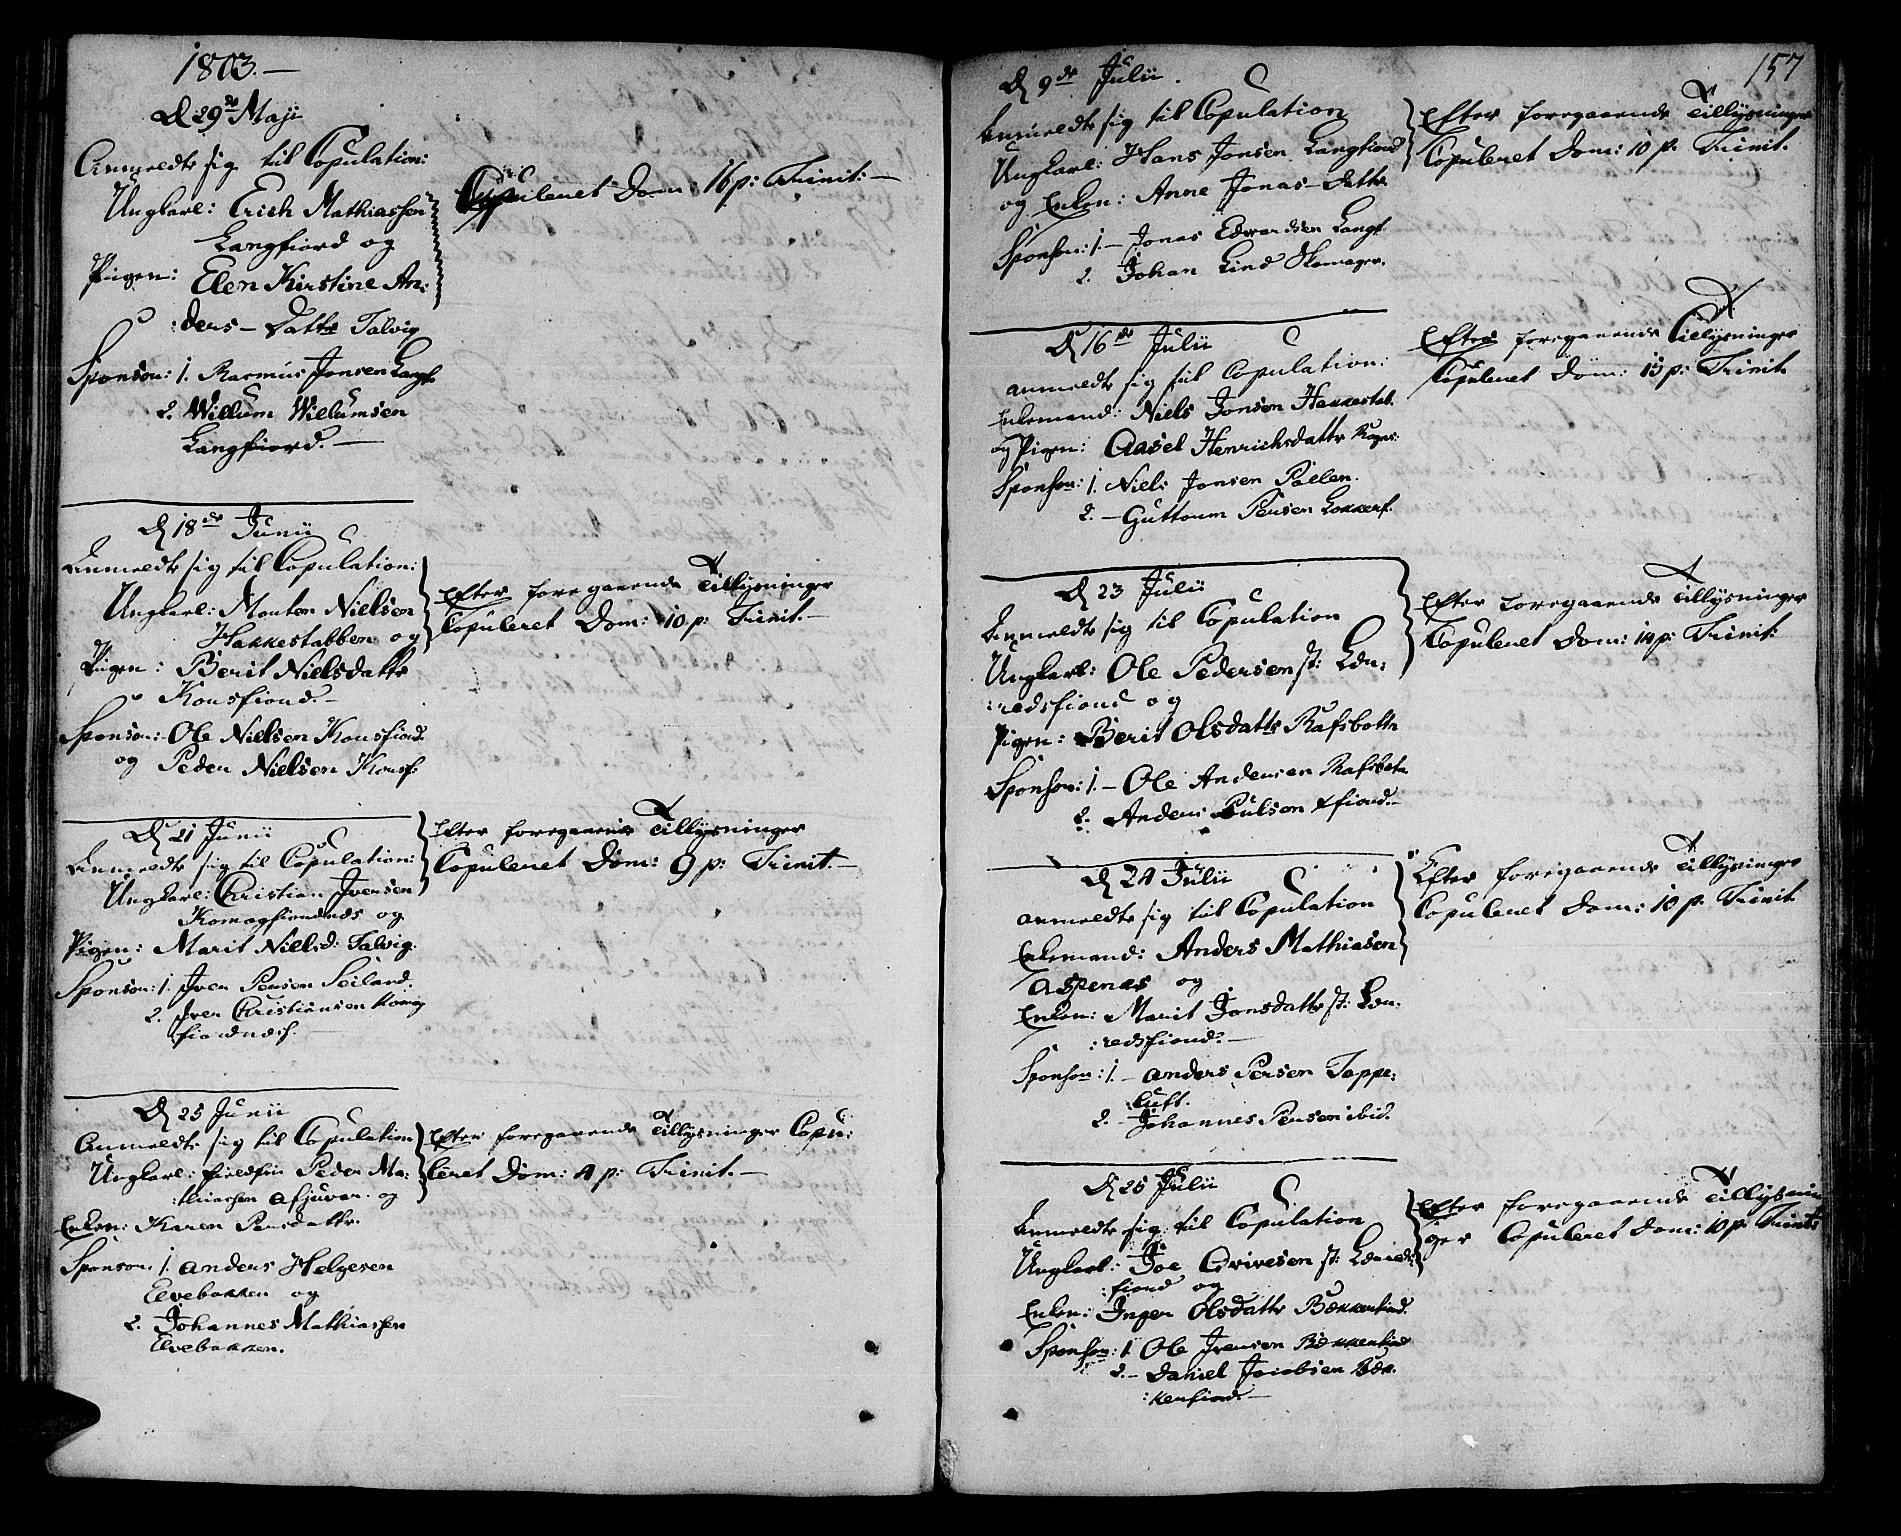 1803.—
D 29de Maji
Anmeldte sig til Copulation:
Ungkarl: Erich Mathiassen
Langfiord og
Pigen: Elen Kirstine An:
:ders- Dattr Talvig
Sponsor: 1. Rasmus Jonsen Langf:
2. Willum Willumsen
Langfiord.—
Copuleret Dom: 16 p: Trinit:—
D 18de Junii
Anmeldte sig til Copulation:
Ungkarl: Morten Nielsen
Hakkestabben og
Pigen: Berit Nielsdattr
Korsfiord.—
Sponson: Ole Nielsen Korsfiord
og Peder Nielsen Korsf:
Efter foregaaende Tillysninger
Copuleret Dom: 10 p: Trinit.—
D 21 Junii
Anmeldte sig til Copulation:
Ungkarl: Christian Iversen
Komagfiordnæs og
Pigen: Marit Nielsd: Talvig.
Sponson: 1. Iver Persen Seiland.
2. Iver Christiansen Komag
fiordnæs.
Efter foregaaende Tillysninger
Copuleret Dom: 9 p: Trinit.—
D 25 Junii
Anmeldte sig til Copulation
Ungkarl: Fieldfin Peder Ma:
:thiassen Afjuvar. og
Enken: Karen Persdattr.
Sponson: 1. Anders Helgesen
Elvebakken og
2. Johannes Mathiassen
Elvebakken.
Efter foregaaende Tillysninger Copu:
leret Dom: 4 p: Trinit.—
157
D 9de Julii.
Anmeldte sig til Copulation
Ungkarl: Hans Jonsen Langfiord
og Enken: Anne Jonas-Dattr
Sponson: 1.— Jonas Edvardsen Langf.
2. Johan Lind Skomager.
Efter foregaaende Tillysninger
Copuleret Dom: 10 p: Trinit.
D 16de Julii
anmeldte sig til Copulation:
Enkemand: Niels Jonsen Hakkestab.
og Pigen: Aasel Henrichsdattr
Sponson: 1. Niels Jonsen Pollen.
2.— Guttorm Persen Lokkerf.
Efter foregaaende Tillysninger
Copuleret Dom: 15 p: Trinit.
D 23 Julii
Anmeldte sig til Copulation
Ungkarl: Ole Pedersen st: Læ:
:redsfiord og
Pigen: Berit Olsdattr Rafsbotn
Sponson: 1.— Ole Andersen Rafsbotn
2. Anders Pulsen fiord.—
Efter foregaaende Tillysninger
Copuleret Dom: 14 p: Trinit:
D 24 Julii
anmeldte sig til Copulation
Enkemand: Anders Mathiasen
Aspenæs og
Enken: Marit Jonsdattr st: Læ:
:redsfiord.—
Sponson: 1.— Anders Persen Toppe:
:luft.
2.— Johannes Persen ibid.
Efter foregaaende Tillysninger
Copuleret Dom: 10 p: Trinit
D 25 Julii
Anmeldte sig til Copulation
Ungkarl: Joe st: Læreds
:fiord og
Enken: Inger Olsdattr Bekkerfiord.
Sponson: 1. Ole Iversen Bekkerfiord
2.— Daniel Jacobsen Bek:
:kerfiord.—
Efter foregaaende Tillysnin
ger Copuleret Dom: 10 p: Trinit: